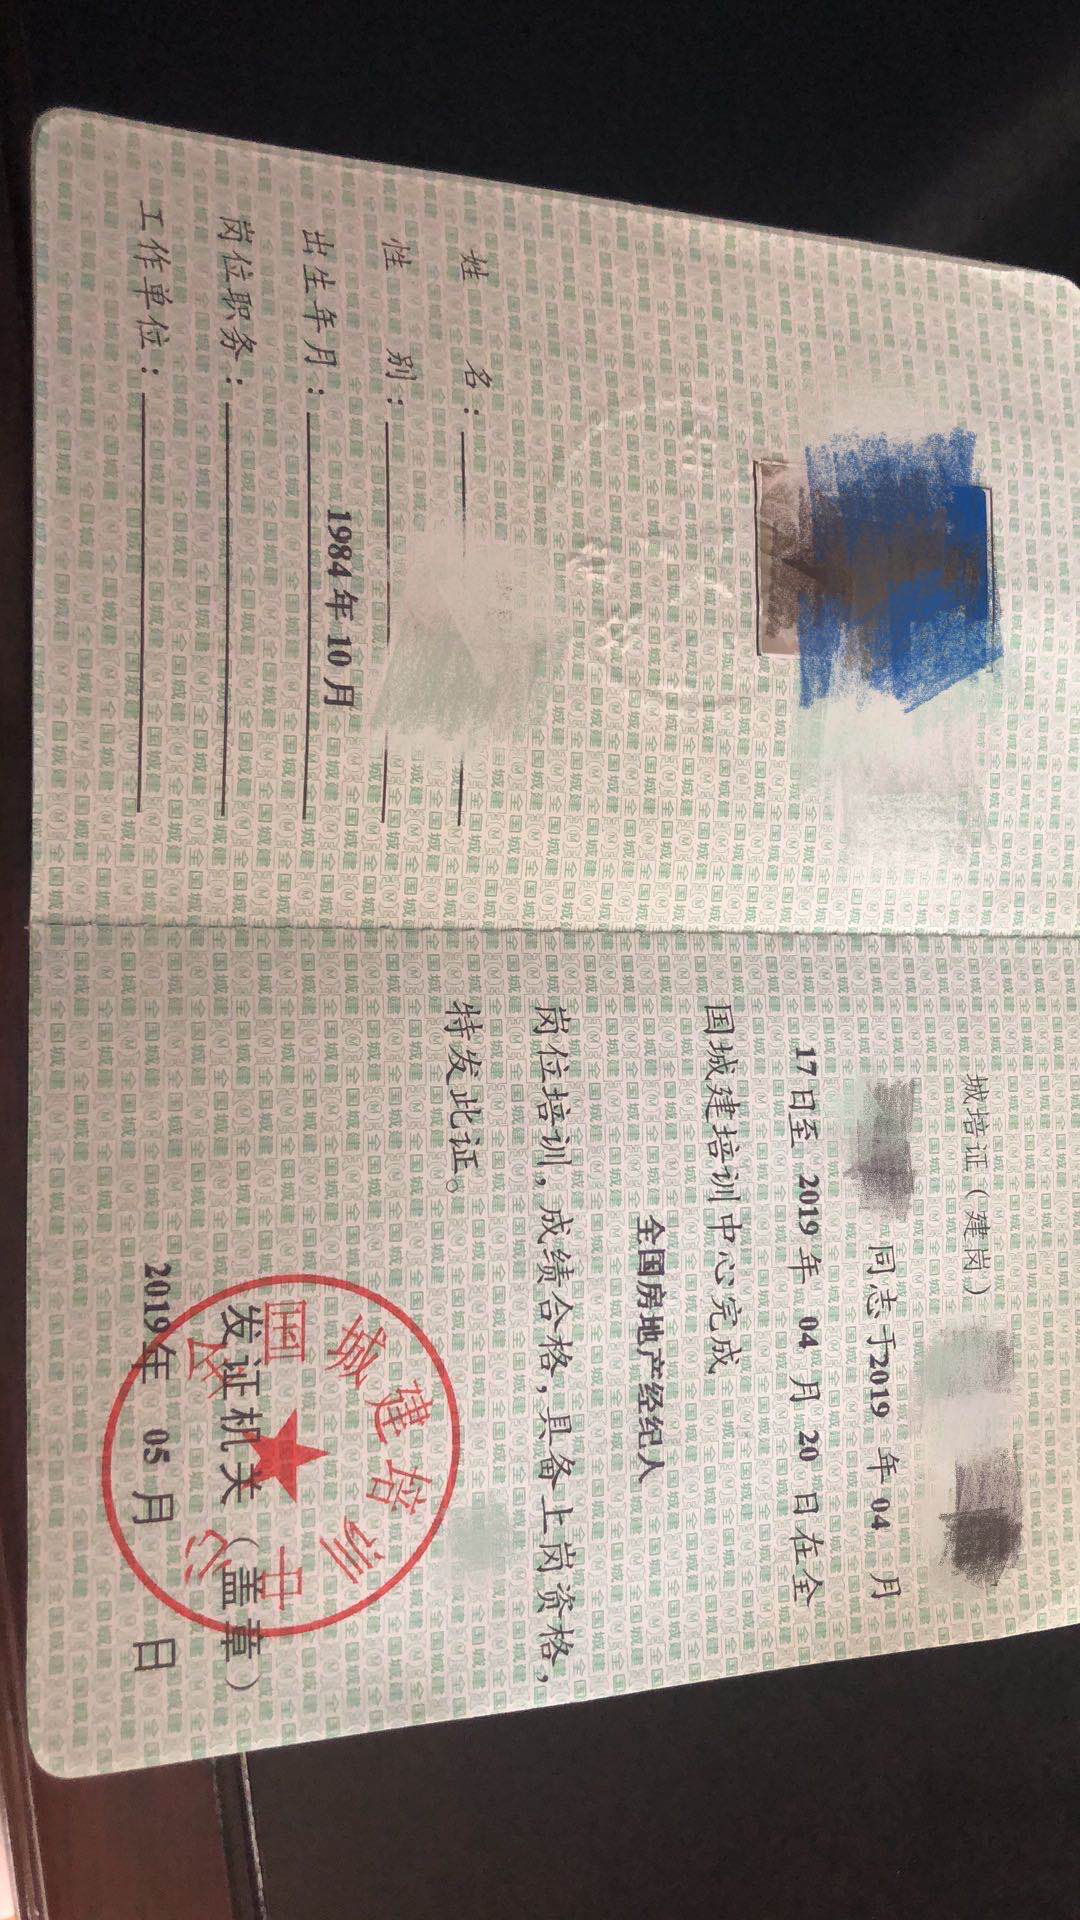 姓 名：
性 别：
出生年月： 1984年10月
岗位职务：
工作单位：
城培证（建岗）
同志于2019 年 04 月
17日至 2019 年 04 月 20 日在全
国城建培训中心完成
全国房地产经纪人
岗位培训，成绩合格，具备上岗资格，
特发此证。
发证机关（盖章）
2019年 05 月 日
全国城建培训中心